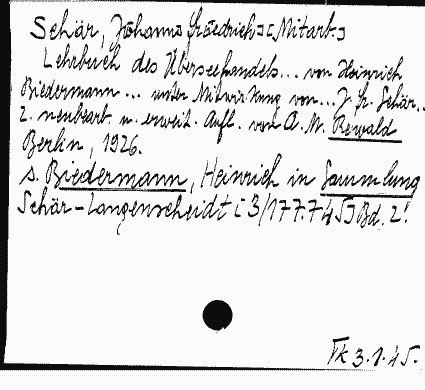 Schär, Johann Friedrich [Mitarb.]
Lehrbuch des Überseehandels... von Heinrich
Biedermann ... unter Mitwirkung von... J. Fr. Schär..
2. neubearb. u. erweit. Aufl. von A. M. Rewald
Berlin, 1926.
s. Biedermann, Heinrich in Sammlung
Schär-Langenscheidt [3/177.745] Bd. 2!
Fk 3.1.45.